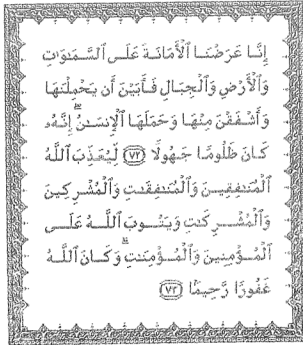 إِنَّا عَرَضْنَا ٱلْأَمَانَةَ عَلَى ٱلسَّمَٰوَٰتِ
وَٱلْأَرْضِ وَٱلْجِبَالِ فَأَبَيْنَ أَن يَحْمِلْنَهَا
وَأَشْفَقْنَ مِنْهَا وَحَمَلَهَا ٱلْإِنسَٰنُ ۖ إِنَّهُۥ
كَانَ ظَلُومًا جَهُولًا ﴿٧٢﴾ لِّيُعَذِّبَ ٱللَّهُ
ٱلْمُنَٰفِقِينَ وَٱلْمُنَٰفِقَٰتِ وَٱلْمُشْرِكِينَ
وَٱلْمُشْرِكَٰتِ وَيَتُوبَ ٱللَّهُ عَلَى
ٱلْمُؤْمِنِينَ وَٱلْمُؤْمِنَٰتِ ۗ وَكَانَ ٱللَّهُ
غَفُورًا رَّحِيمًا ﴿٧٣﴾